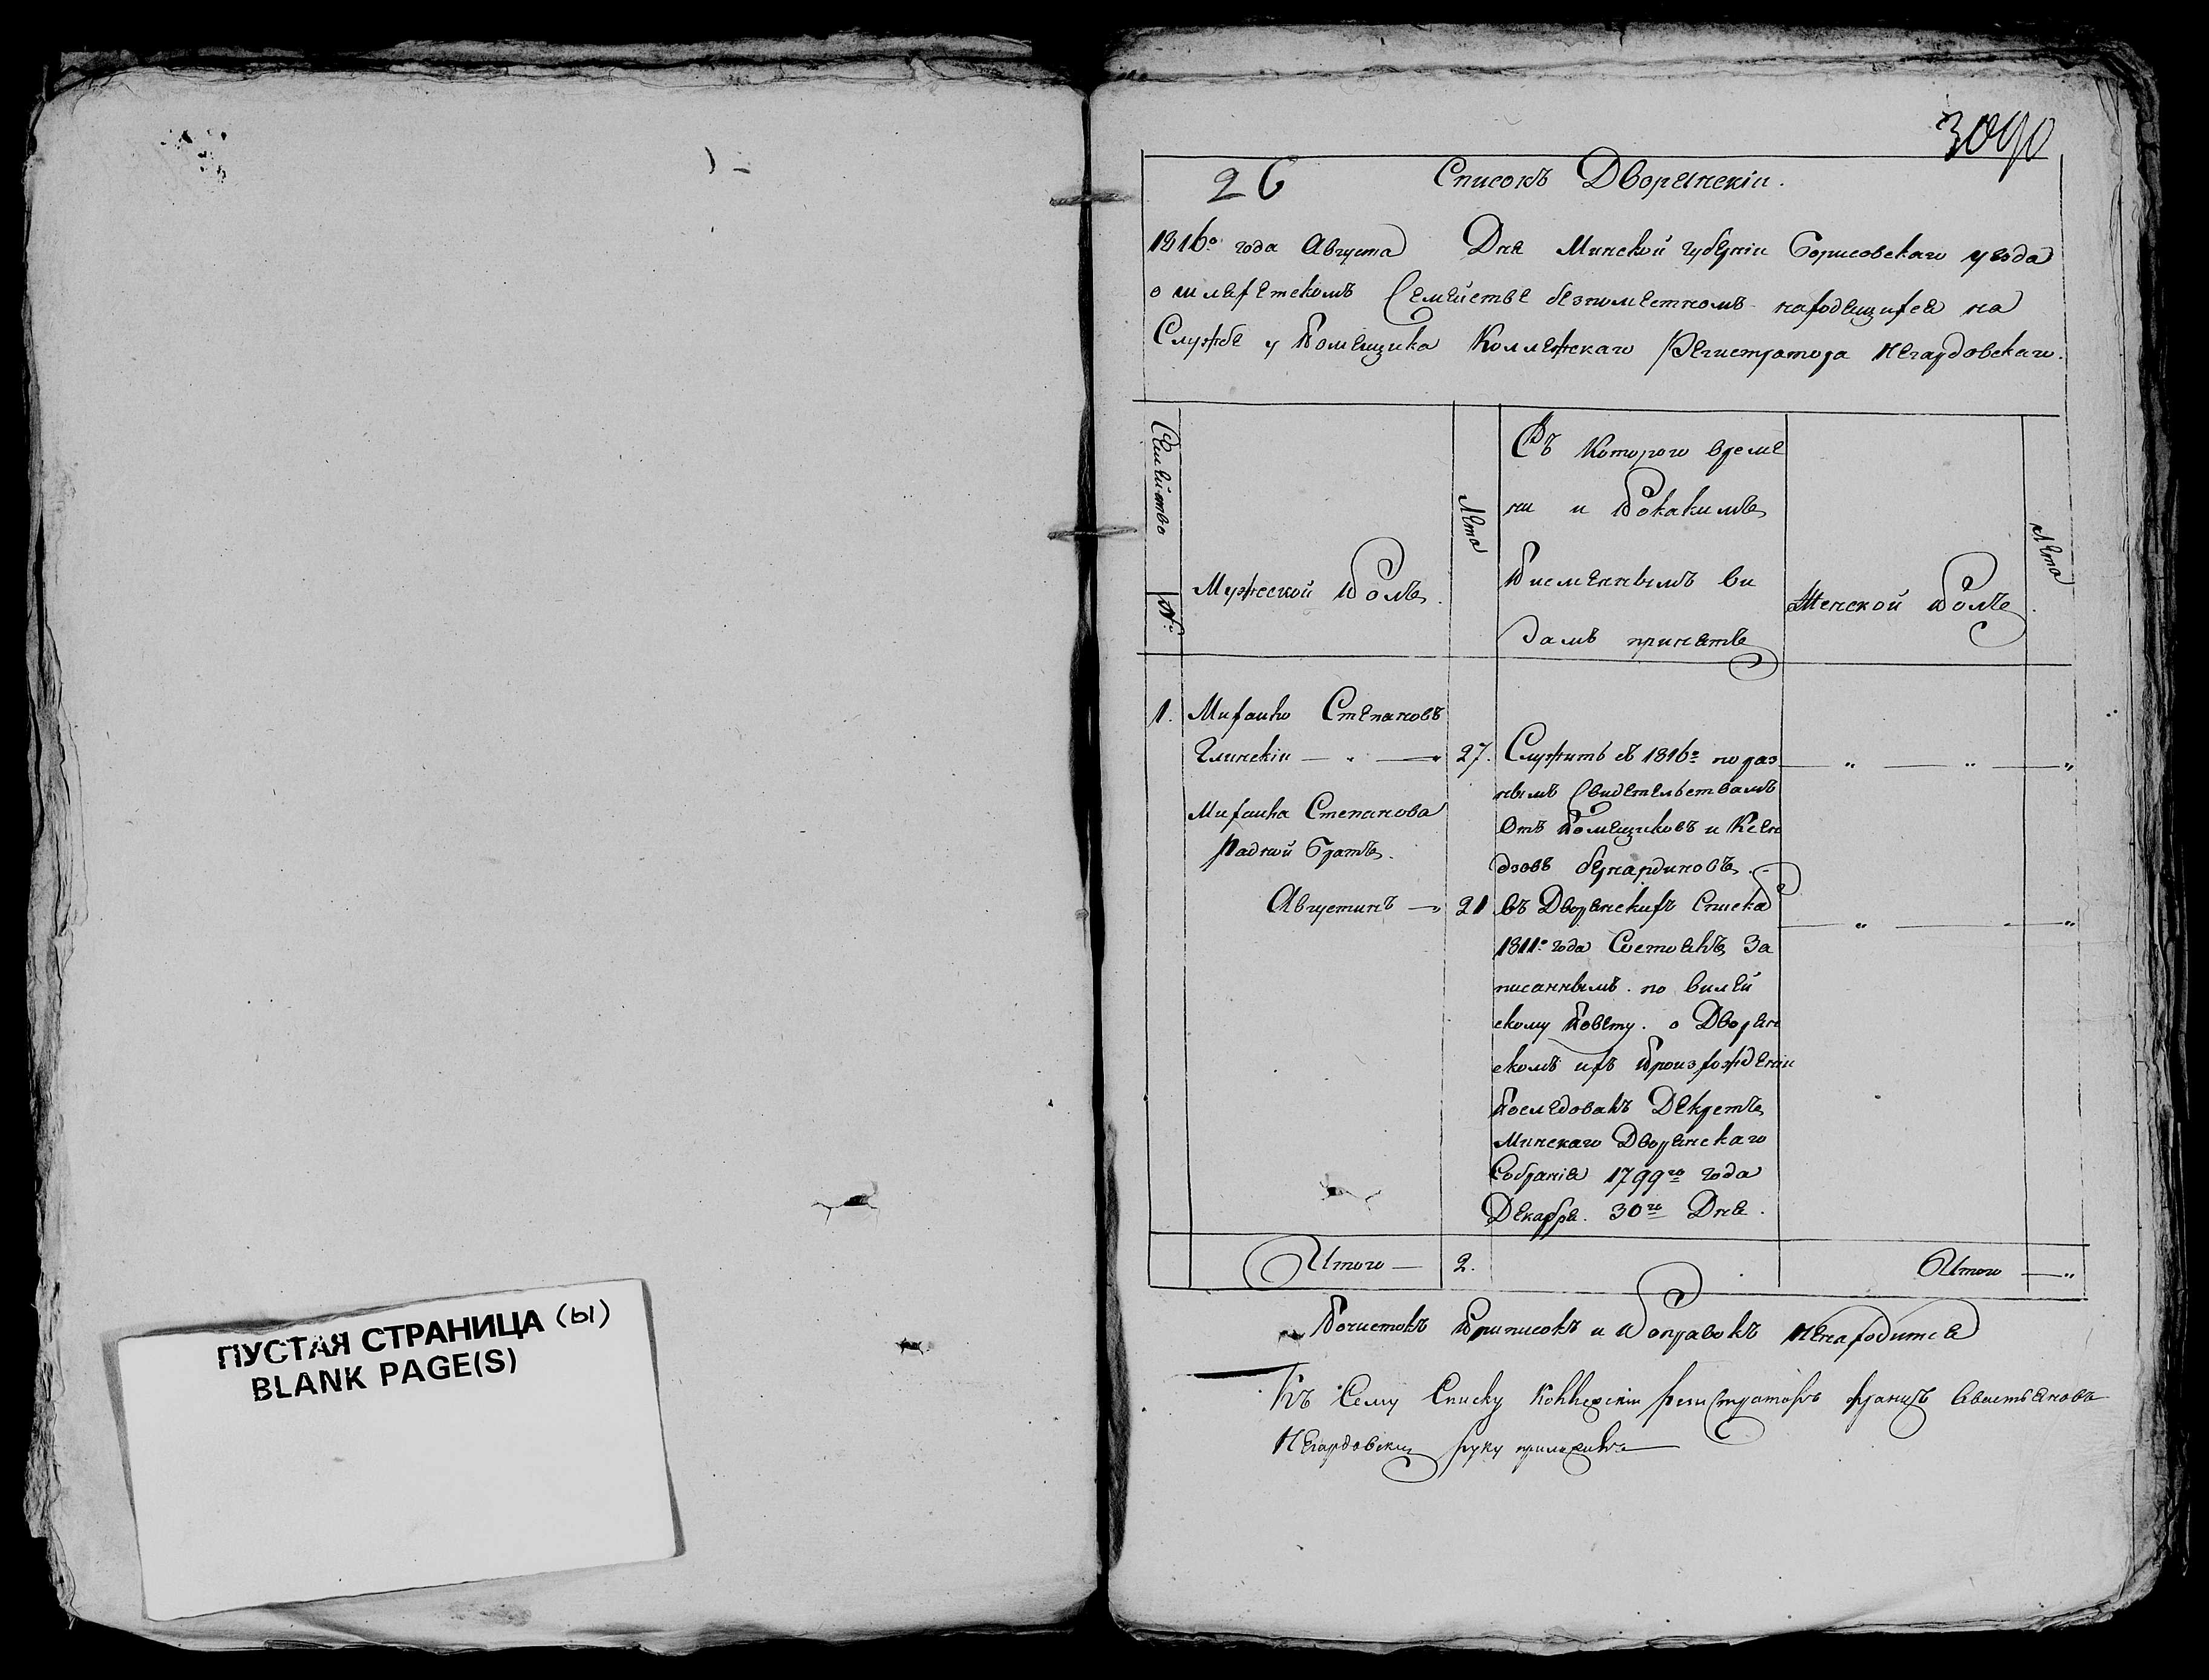 ПУСТАЯ СТРАНИЦА (ы)
BLANK PAGE(S)
26 Списокъ Дворянскiи.
1816го года Августа Дня Минской губернiи Борисовскаго уезда
о шляхетскомъ Семействе безпоместномъ находящихся на
Службе у Помещика Коллежскаго Регистратора Негардовскаго.
Семейство
№
Мужеской Полъ.
Лета
Съ Которого време
ни и Покакимъ
Писменнымъ ви
дамъ принятъ
Женской Полъ.
Лета
1. Михаило Степановъ
Глинскiи 27. Служитъ съ 1816го по раз
нымъ Свидетельствамъ
Михаила Степанова
Отъ Помещиковъ и Ксен
Радной Братъ.
дзовъ бернардиновъ.
Августинъ 21 въ Дворянскихъ Списка
1811го года Состоялъ За
писаннымъ. по вилей
скому Повету. о Дворян
скомъ ихъ Произхожденiи
Последовалъ Декретъ
Минскаго Дворянскаго
Собранiя 1799го года
Декабря. 30го Дня.
Итого 2. Итого
Почистокъ Приписокъ и Поправокъ Ненаходится
Къ Сему Списку Коллежскiи регистраторъ францъ
Негардовскiи руку приложилъ